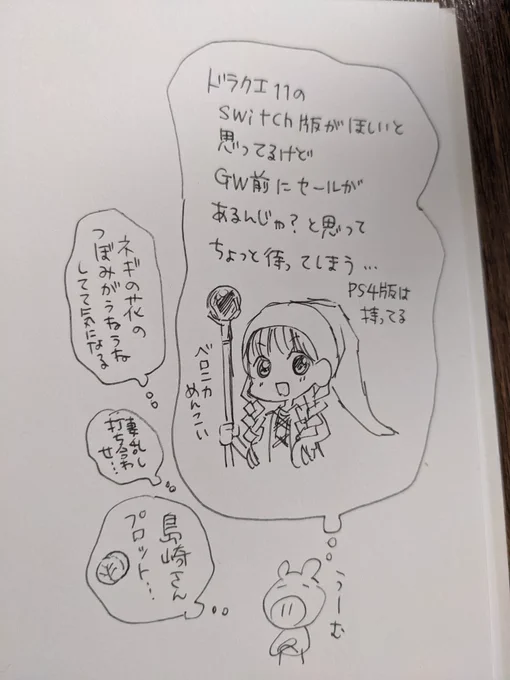 ドラクエ11の
switch版がほしいと
思ってるけど
GW前にセールが
あるんじゃ？と思って
ちょっと待ってしまう…
PS4版は
持ってる
ベロニカ
めんこい
ネギの花の
つぼみがうねうね
してて気になる
打ち合わ
せ…
島崎さん
プロット…
うーむ